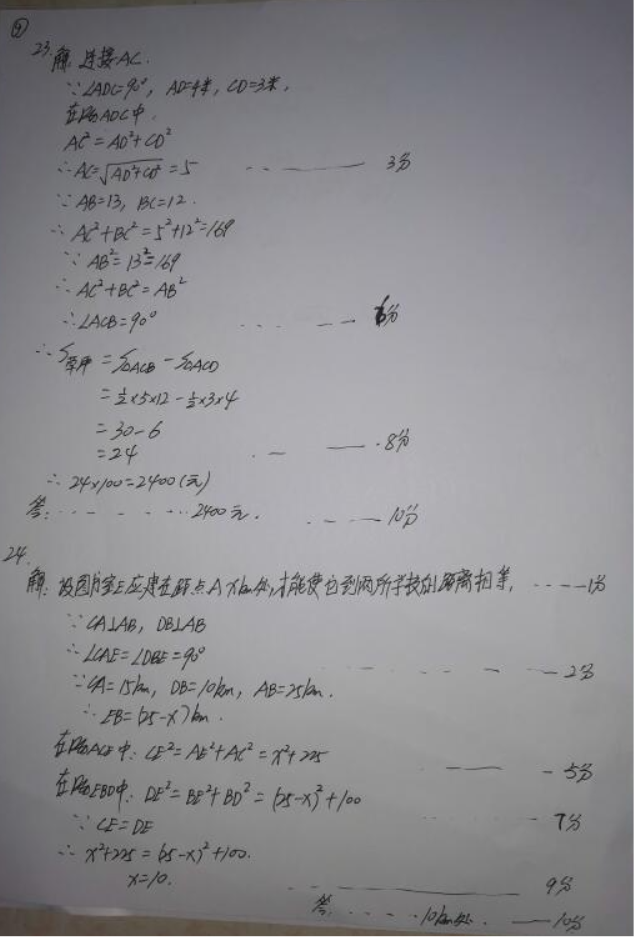 ④
23. 解: 连接AC.
∵∠ADC=90°, AD=4米, CD=3米,
在Rt△ADC中.
AC²=AD²+CD²
∴AC=√AD²+CD²=5 --- 3分
∵AB=13, BC=12.
∴AC²+BC²=5²+12²=169
∵AB²=13²=169
∴AC²+BC²=AB²
∴∠ACB=90° --- 6分
∴S草坪=S△ACB-S△ACD
=½×5×12-½×3×4
=30-6
=24 --- 8分
∴24×100=2400(元)
答: ------ 2400元. --- 10分
24.
解: 设图书室E应建在距点A xkm处,才能使它到两所学校的距离相等. ---1分
∵CA⊥AB, DB⊥AB
∴∠CAE=∠DBE=90° --- 2分
∵CA=15km, DB=10km, AB=25km.
∴EB=(25-x)km.
在Rt△ACE中: CE²=AE²+AC²=x²+225 --- 5分
在Rt△EBD中: DE²=BE²+BD²=(25-x)²+100
∵CE=DE --- 7分
∴x²+225=(25-x)²+100.
x=10. --- 9分
答. ---- 10km处. --- 10分